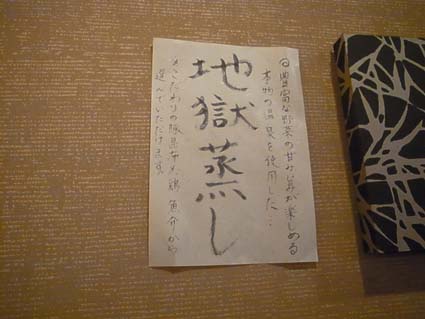 ◎豊富な野菜の甘み・旨みが楽しめる
本物の温泉を使用した…
地獄蒸し
メインこだわりの豚・黒毛和牛・鶏・魚介から
選んでいただけます。